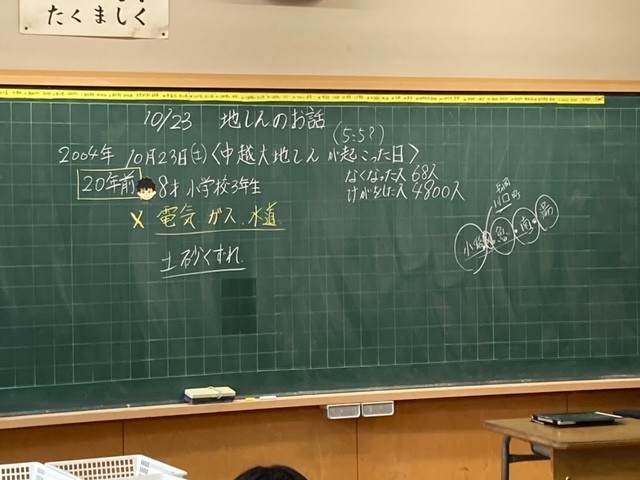 たくましく
10/23 地しんのお話
(5:5?)
2004年 10月23日(土)〈中越大地しんが起こった日〉
20年前 8才 小学校3年生
なくなった人 68人
けがをした人 4800人
× 電気 ガス 水道
土砂くずれ
川口町
小
魚・南・湯